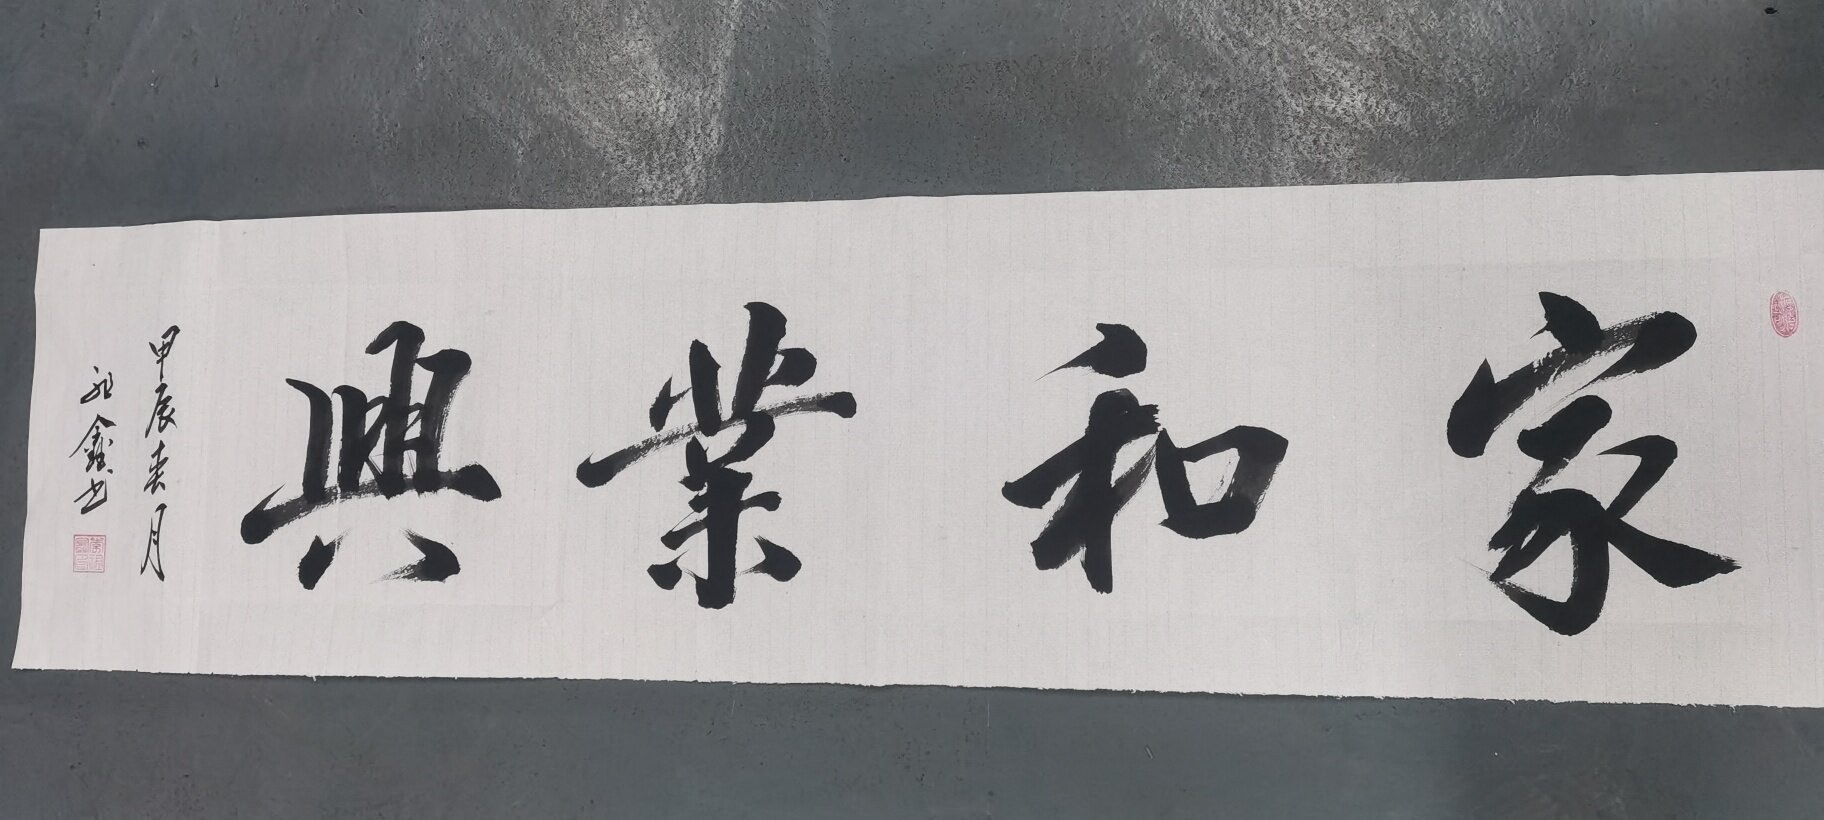 家和業興
甲辰春月
鑫书